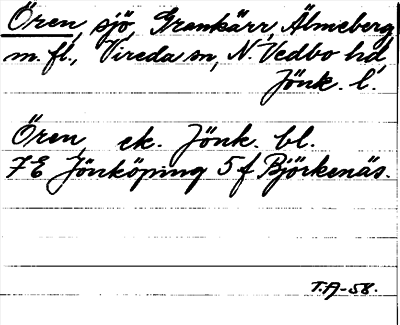 Ören, sjö, Grenkärr, Älmeberg
m. fl., Vireda sn, N. Vedbo hd,
Jönk. l.
Ören, ek. Jönk. bl.
7E Jönköping 5 f Björkenäs.
T.A-58.